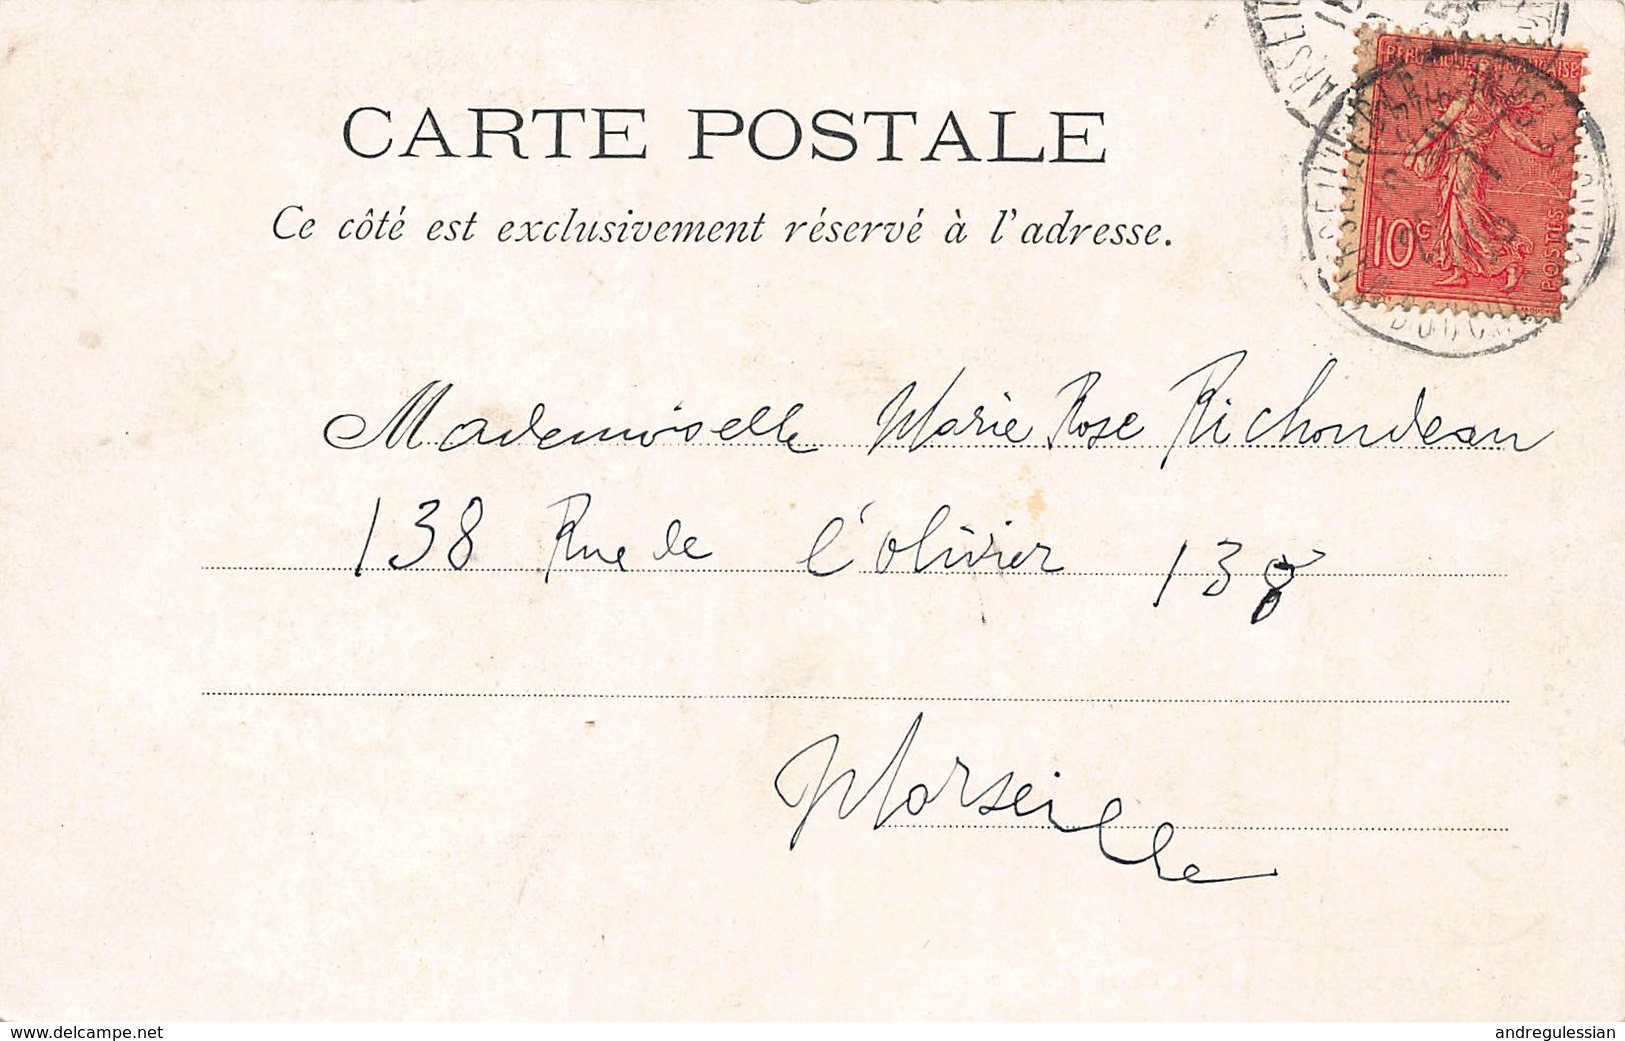 CARTE POSTALE
Ce côté est exclusivement réservé à l'adresse.
REPUBLIQUE FRANÇAISE
10c
POSTES
Mademoiselle Marie Rose Richondeau
138 Rue de l'olivier 138
Marseille
www.delcampe.net
andregulessian